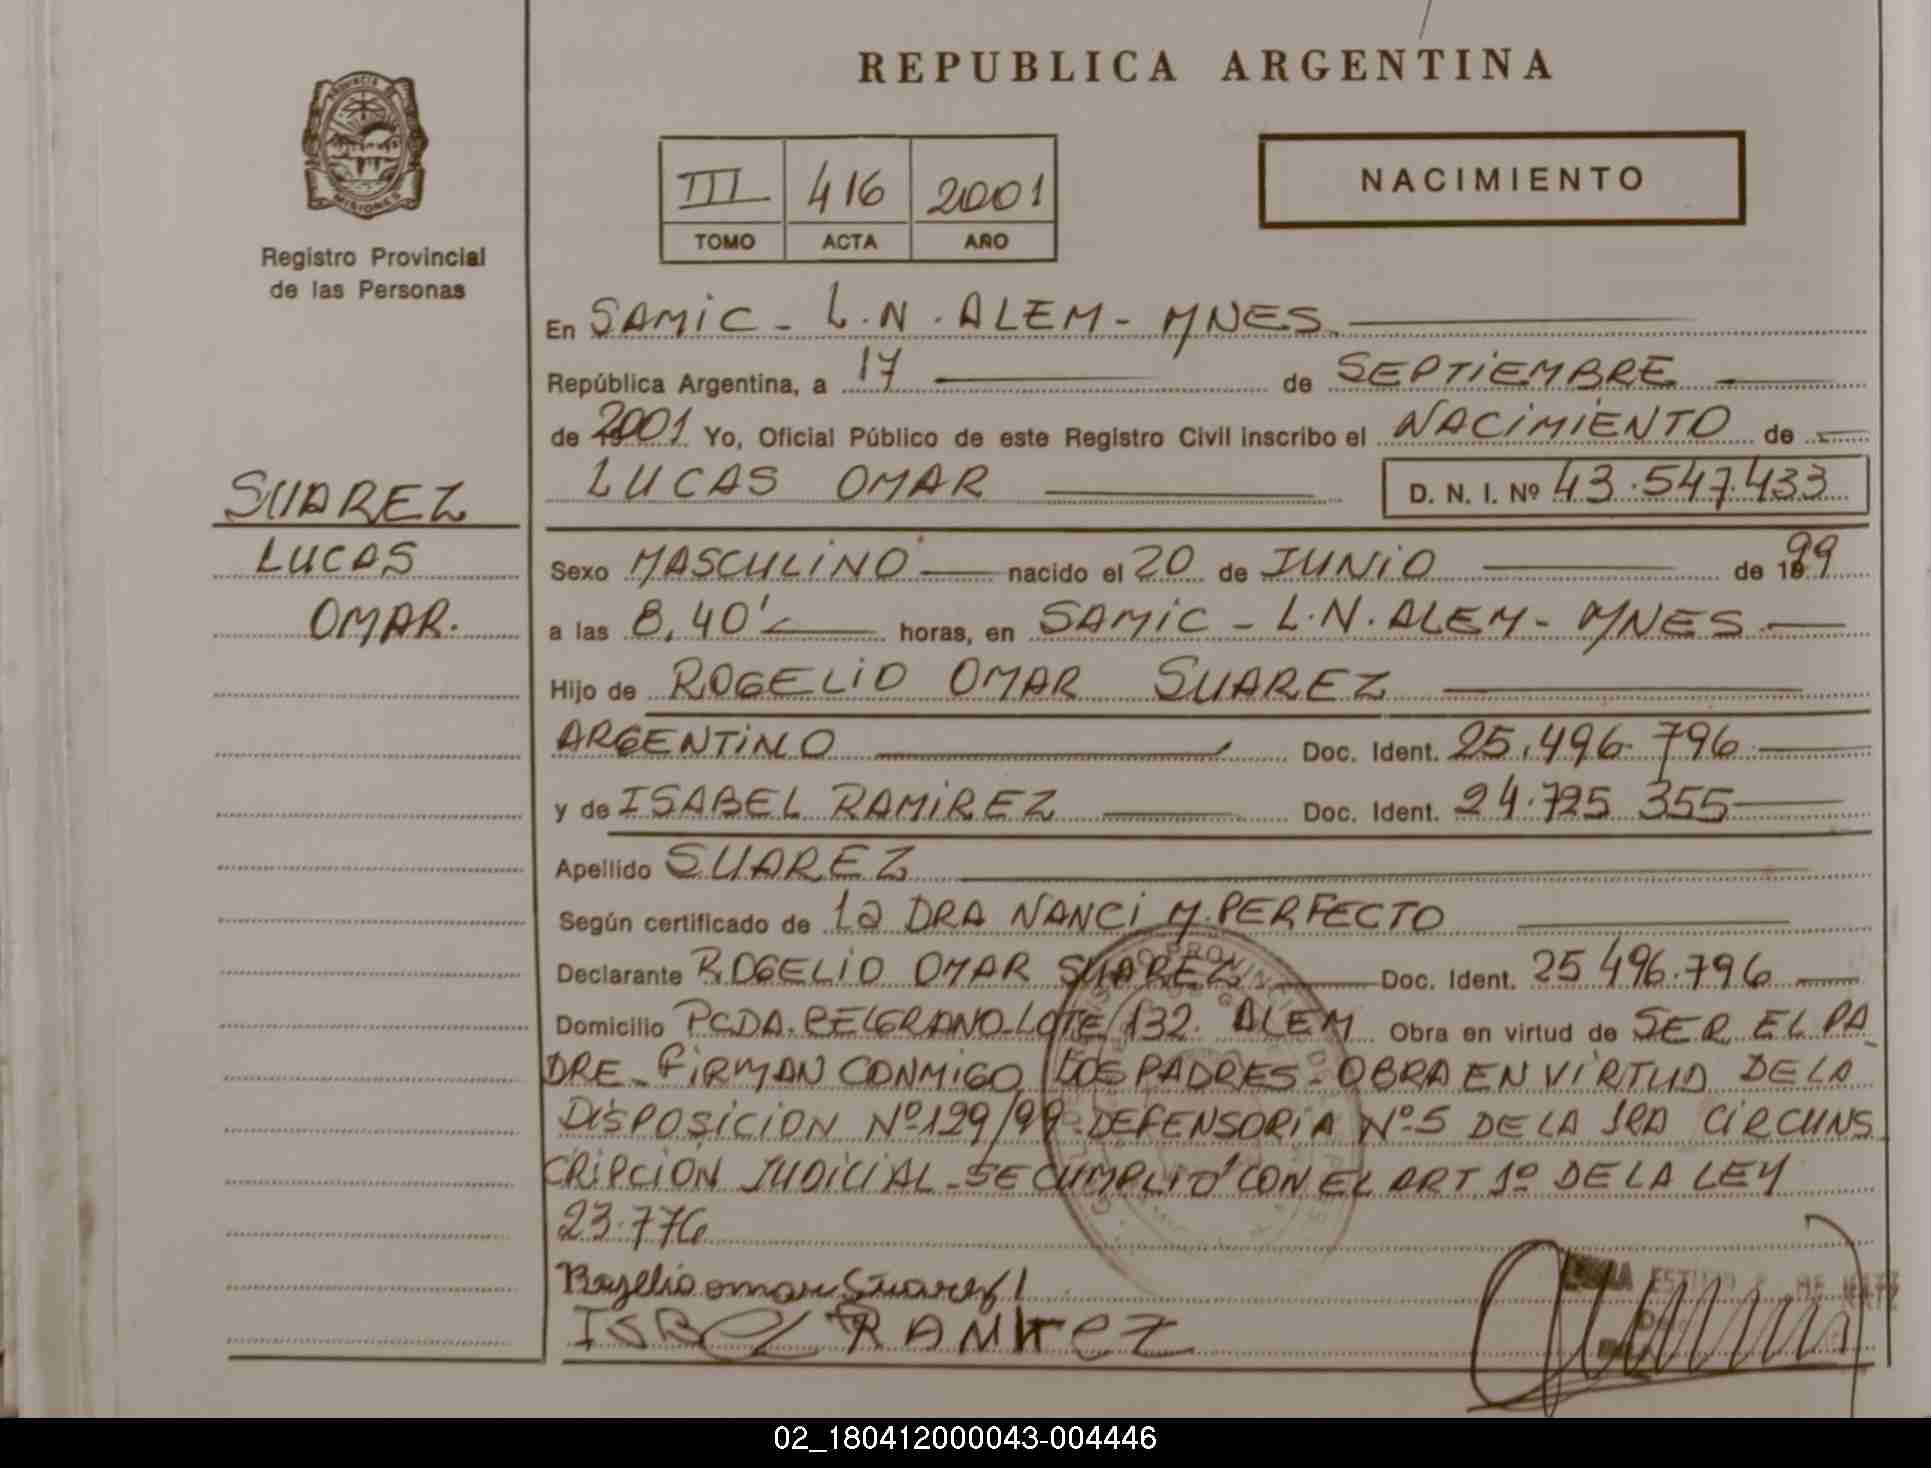 REPUBLICA ARGENTINA
PROVINCIA DE
MISIONES
Registro Provincial
de las Personas
III 416 2001
TOMO ACTA AÑO
NACIMIENTO
En SAMIC - L.N. ALEM - MNES.
República Argentina, a 17 de SEPTIEMBRE
de 2001 Yo, Oficial Público de este Registro Civil inscribo el NACIMIENTO de
LUCAS OMAR D. N. I. Nº 43.547.433
SUAREZ
LUCAS
OMAR.
Sexo MASCULINO nacido el 20 de JUNIO de 1999
a las 8,40' horas, en SAMIC - L.N. ALEM - MNES
Hijo de ROGELIO OMAR SUAREZ
ARGENTINO Doc. Ident. 25.496.796
y de ISABEL RAMIREZ Doc. Ident. 24.725.355
Apellido SUAREZ
Según certificado de la DRA NANCI M. PERFECTO
Declarante ROGELIO OMAR SUAREZ Doc. Ident. 25.496.796
Domicilio PCDA. BELGRANO-LOTE 132. ALEM Obra en virtud de SER EL PA_
DRE_ FIRMAN CONMIGO LOS PADRES - OBRA EN VIRTUD DE LA
DISPOSICION Nº 129/99 - DEFENSORIA Nº 5 DE LA 1RA CIRCUNS
CRIPCION JUDICIAL - SE CUMPLIO CON EL ART 1º DE LA LEY
23.776
Rogelio omar Suarez
ISABEL RAMIREZ
02_180412000043-004446